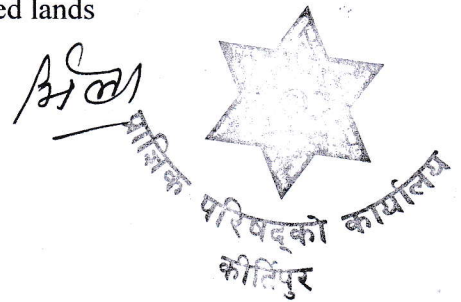 ed lands
प्राज्ञिक परिषद्को कार्यालय
कीर्तिपुर